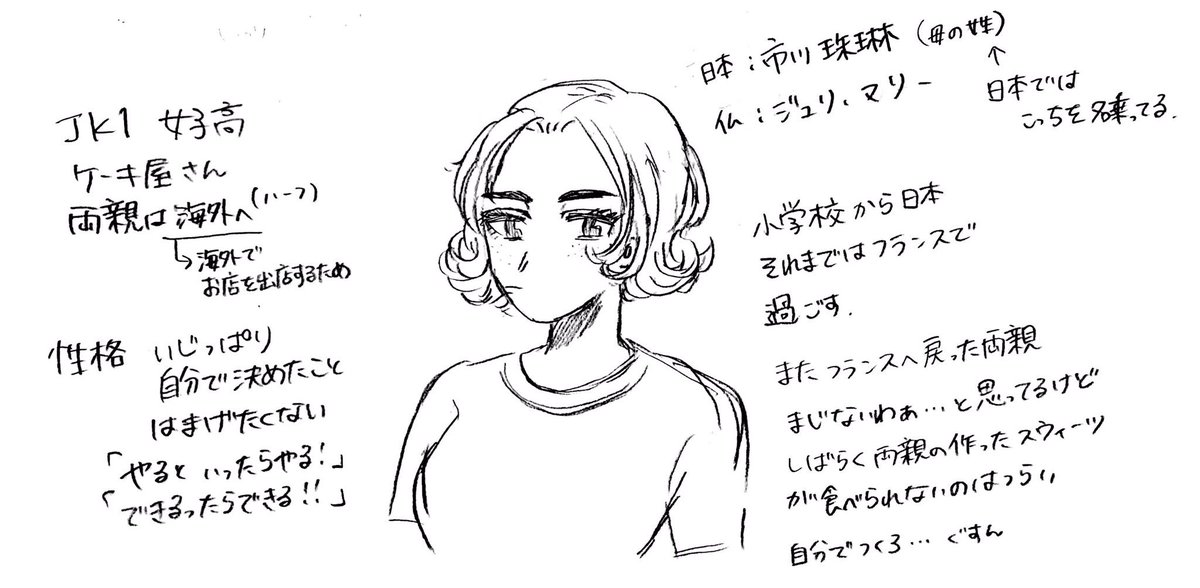 JK1 女子高
ケーキ屋さん
両親は海外へ(ハーフ)
↳海外で
お店を出店するため
性格 いじっぱり
自分で決めたこと
はまげたくない
「やるといったらやる!」
「できるったらできる!!」
日本:市川珠琳(母の姓)
仏:ジュリ、マリー
↑
日本では
こっちを名乗ってる.
小学校から日本
それまではフランスで
過ごす.
またフランスへ戻った両親
まじないわぁ…と思ってるけど
しばらく両親の作ったスウィーツ
が食べられないのはつらい
自分でつくろ…ぐすん